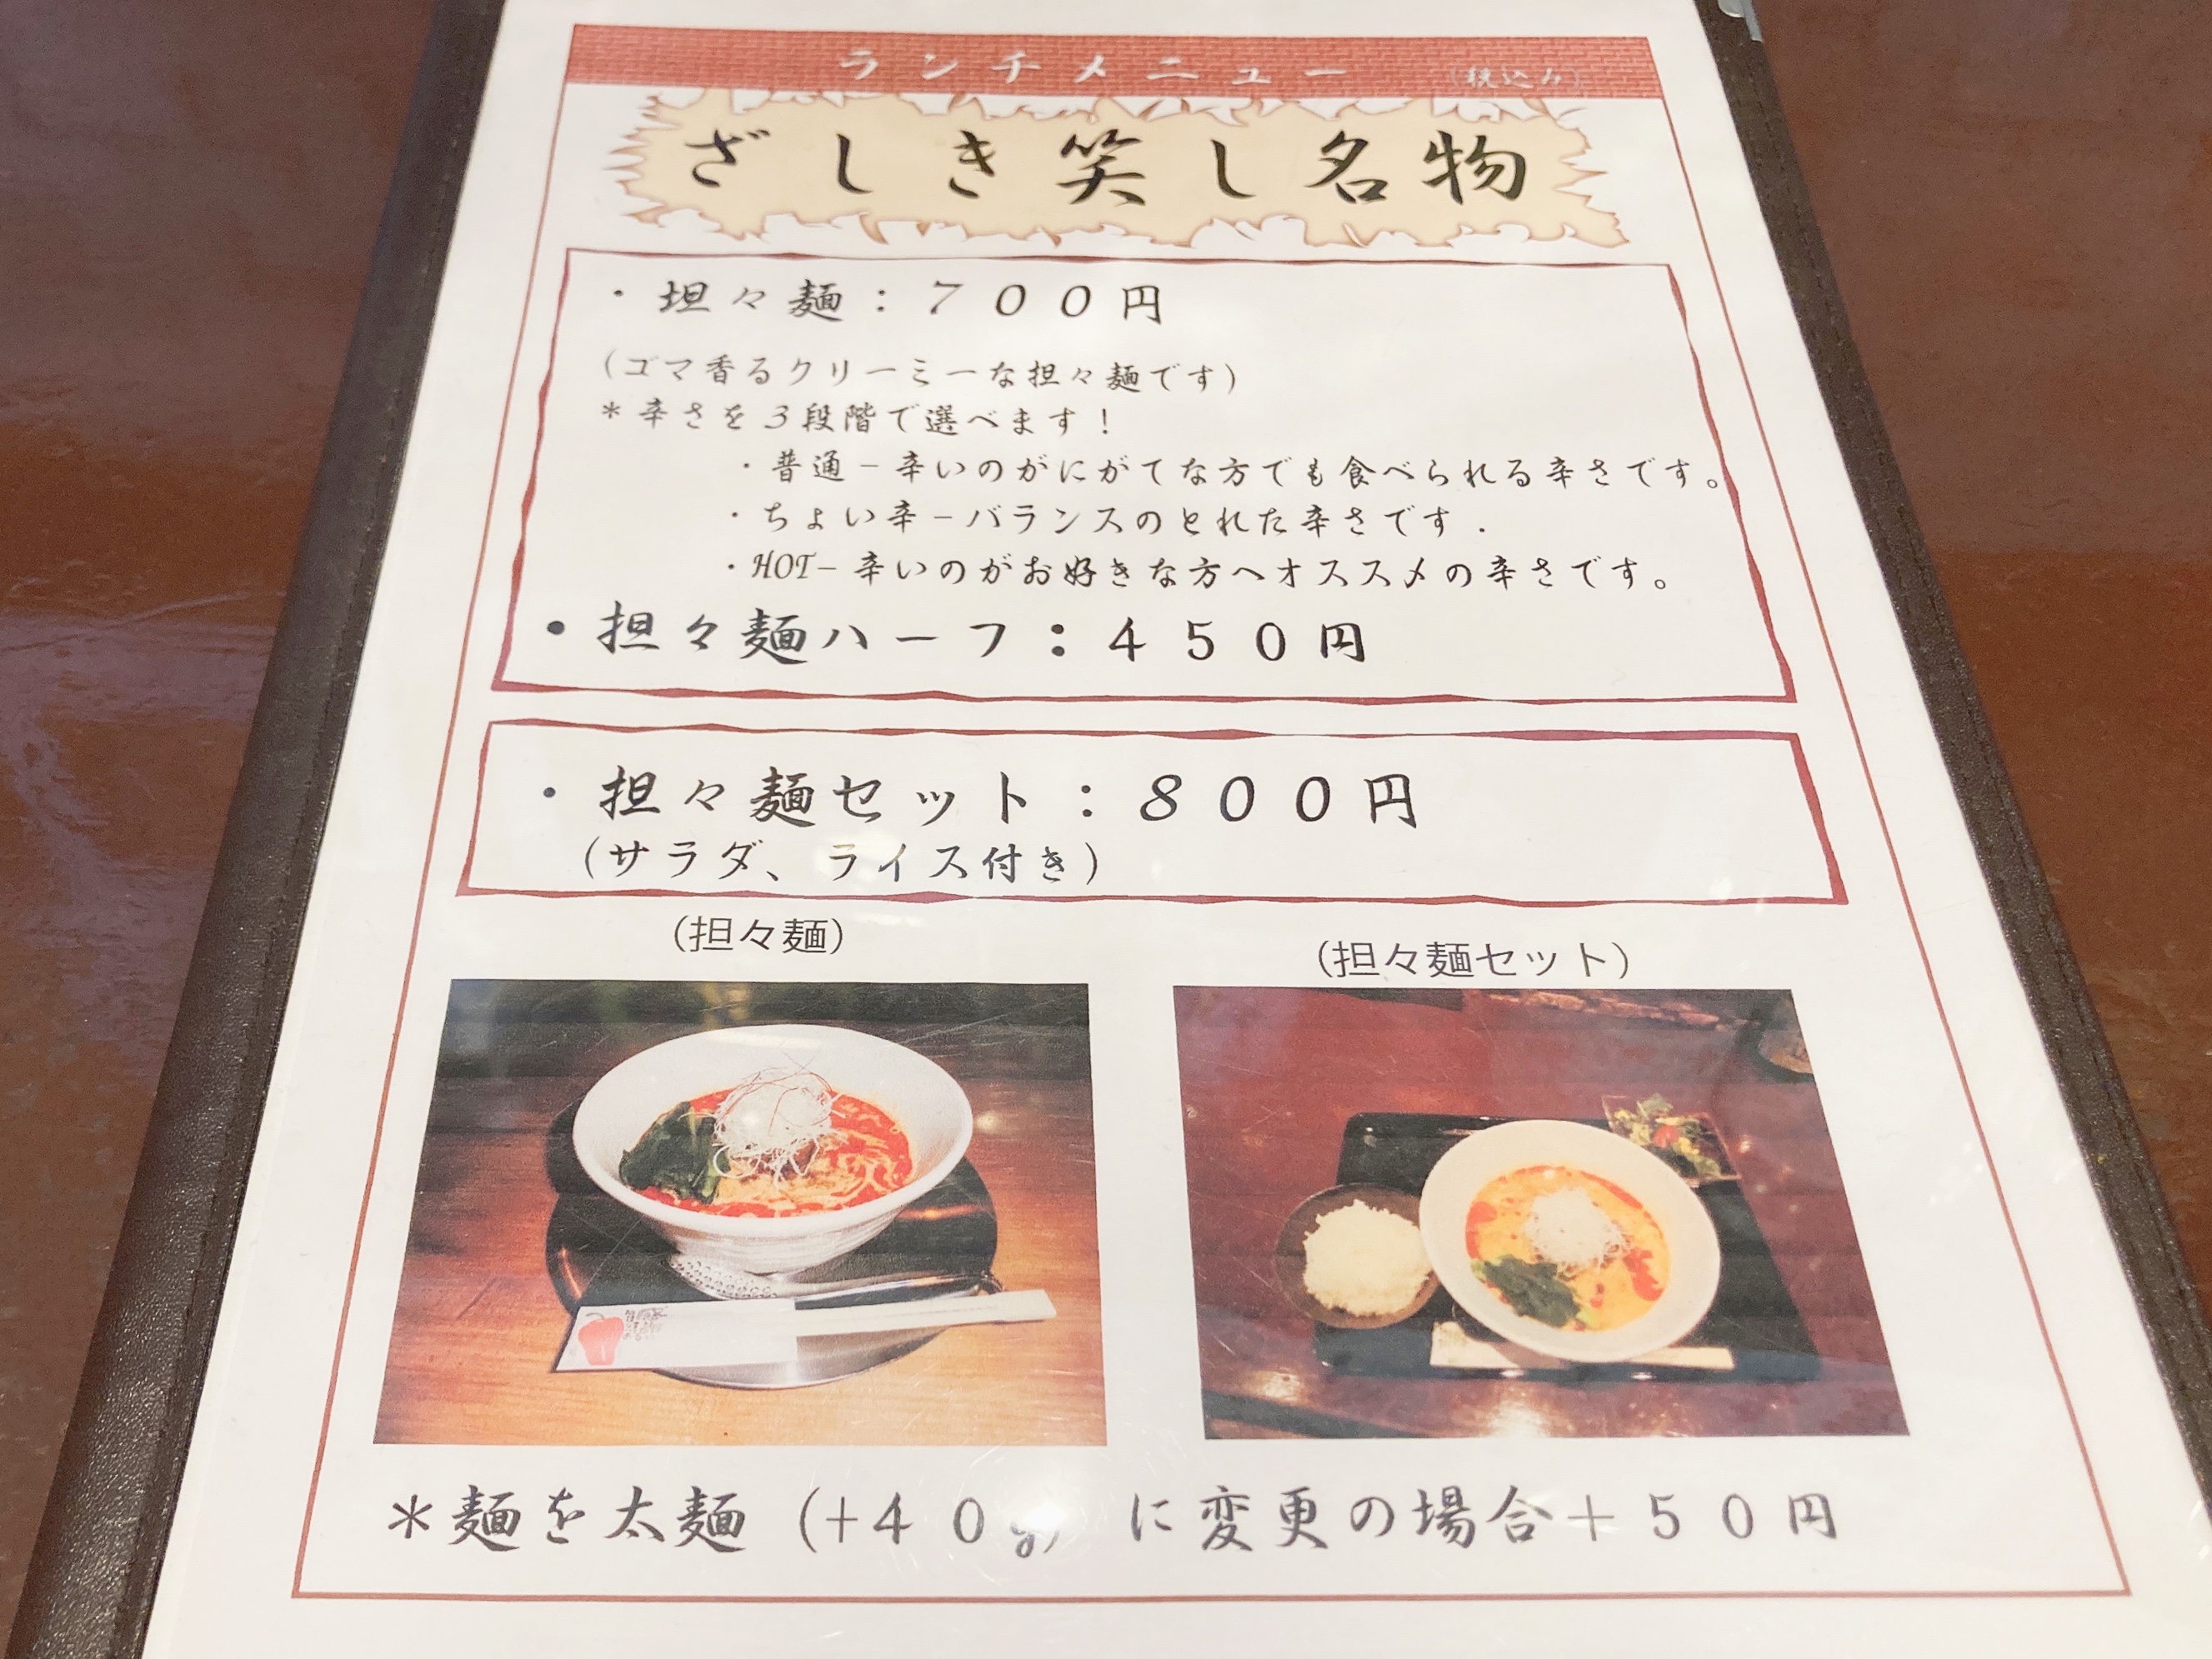 ランチメニュー （税込み）
ざしき笑し名物
・坦々麺：７００円
（ゴマ香るクリーミーな担々麺です）
＊辛さを３段階で選べます！
・普通－辛いのがにがてな方でも食べられる辛さです。
・ちょい辛－バランスのとれた辛さです．
・HOT－辛いのがお好きな方へオススメの辛さです。
・担々麺ハーフ：４５０円
・担々麺セット：８００円
（サラダ、ライス付き）
（担々麺）
（担々麺セット）
＊麺を太麺（＋４０g）に変更の場合＋５０円